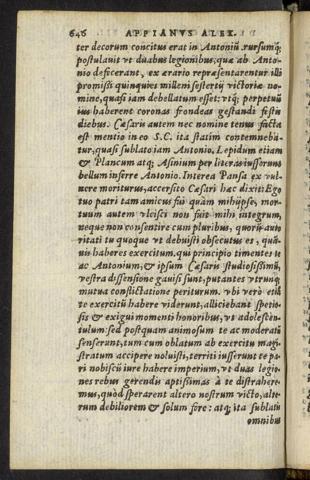 646 APPIANVS ALEX.
ter decorum concitus erat in Antoniũ, rursumq́;
postulauit vt duabus legionibus, quæ ab Anto-
nio defecerant, ex ærario repræsentarentur illi
promissi quinquies milleni sestertij victoriæ no-
mine, quasi iam debellatum esset: vtq́; perpetuũ
ius haberent coronas frondeas gestandi festis
diebus. Cæsaris autem nec nomine tenus facta
est mentio in eo S. C. ita statim contemnebā-
tur, quasi sublato iam Antonio. Lepidum etiam
& Plancum atq; Asinium per literas iusserunt
bellum inferre Antonio. Interea Pansa ex vul-
nere moriturus, accersito Cæsari hæc dixit: Ego
tuo patri tam amicus fui quàm mihijpse, mor-
tuum autem vlcisci non fuit mihi integrum,
neque non consentire cum pluribus, quorũ au-
ritati tu quoque vt debuisti obsecutus es, quã-
uis haberes exercitum. qui principio timentes te
ac Antonium, & ipsum Cæsaris studiosissimũ,
vestra dissensione gauisi sunt, putantes vtrunq;
mutua conflictatione periturum. vbi verò etiã
te exercitũ habere viderunt, alliciebant specio-
sis & exigui momenti honoribus, vt adolescen-
tulum: sed postquam animosum te ac moderatũ
senserunt, tum cum oblatum ab exercitu magi-
stratum accipere noluisti, territi iusserunt te pa-
ri nobiscũ iure habere imperium, vt duas legio-
nes rebus gerendis aptissimas à te distrahere-
mus, quòd sperarent altero nostrum victo, alte-
rum debiliorem & solum fore: atq; ita sublatis
omnibus